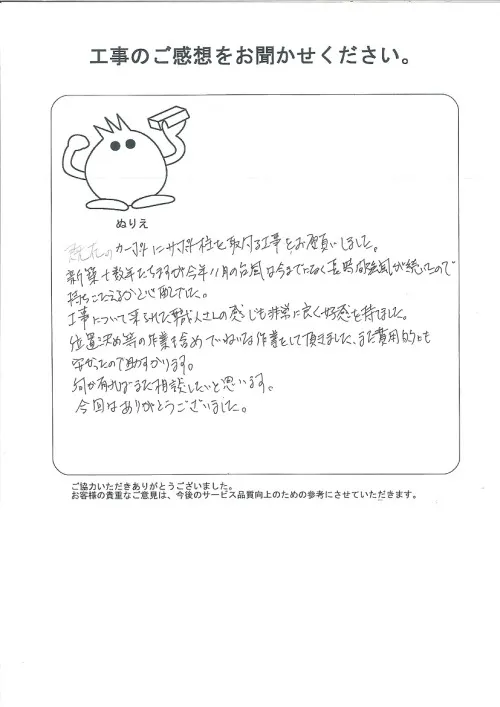 工事のご感想をお聞かせください。
ぬりえ
既存のカーポートにサポート柱を取付る工事をお願いしました。
新築十数年たちますが今年11月の台風は今までになく長時間強風が続いたので
持ちこたえるかと心配でした。
工事について来られた職人さんの感じも非常に良く好感を持ちました。
位置決め等の作業も含めていねいな作業をして頂きました、また費用的も
安かったので助かります。
何か有ればまた相談したいと思います。
今回はありがとうございました。
ご協力いただきありがとうございました。
お客様の貴重なご意見は、今後のサービス品質向上のための参考にさせていただきます。